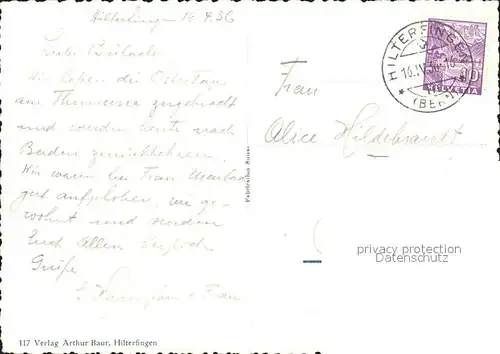 Hilterfingen 16.4.36
Wir haben die Ostertage
am Thunersee zugebracht
und werden heute nach
Baden zurückkehren.
Wir waren bei Frau
gut aufgehoben, wie ge-
wohnt und senden
Euch Allen herzlich
Grüße
+ Frau
117 Verlag Arthur Baur, Hilterfingen
Fabrication Suisse
HILTERFINGEN
(BERN)
HELVETIA
Frau
Alice Hildebrandt
privacy protection
Datenschutz